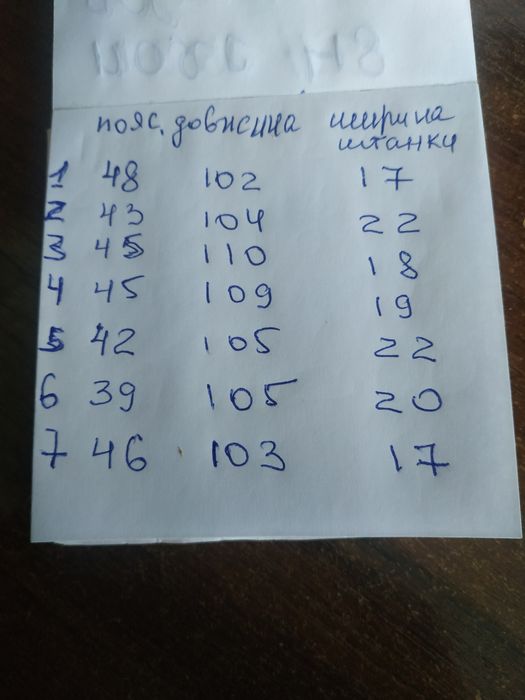 пояс. довжина ширина
штанки
1 48 102 17
2 43 104 22
3 45 110 18
4 45 109 19
5 42 105 22
6 39 105 20
7 46 103 17